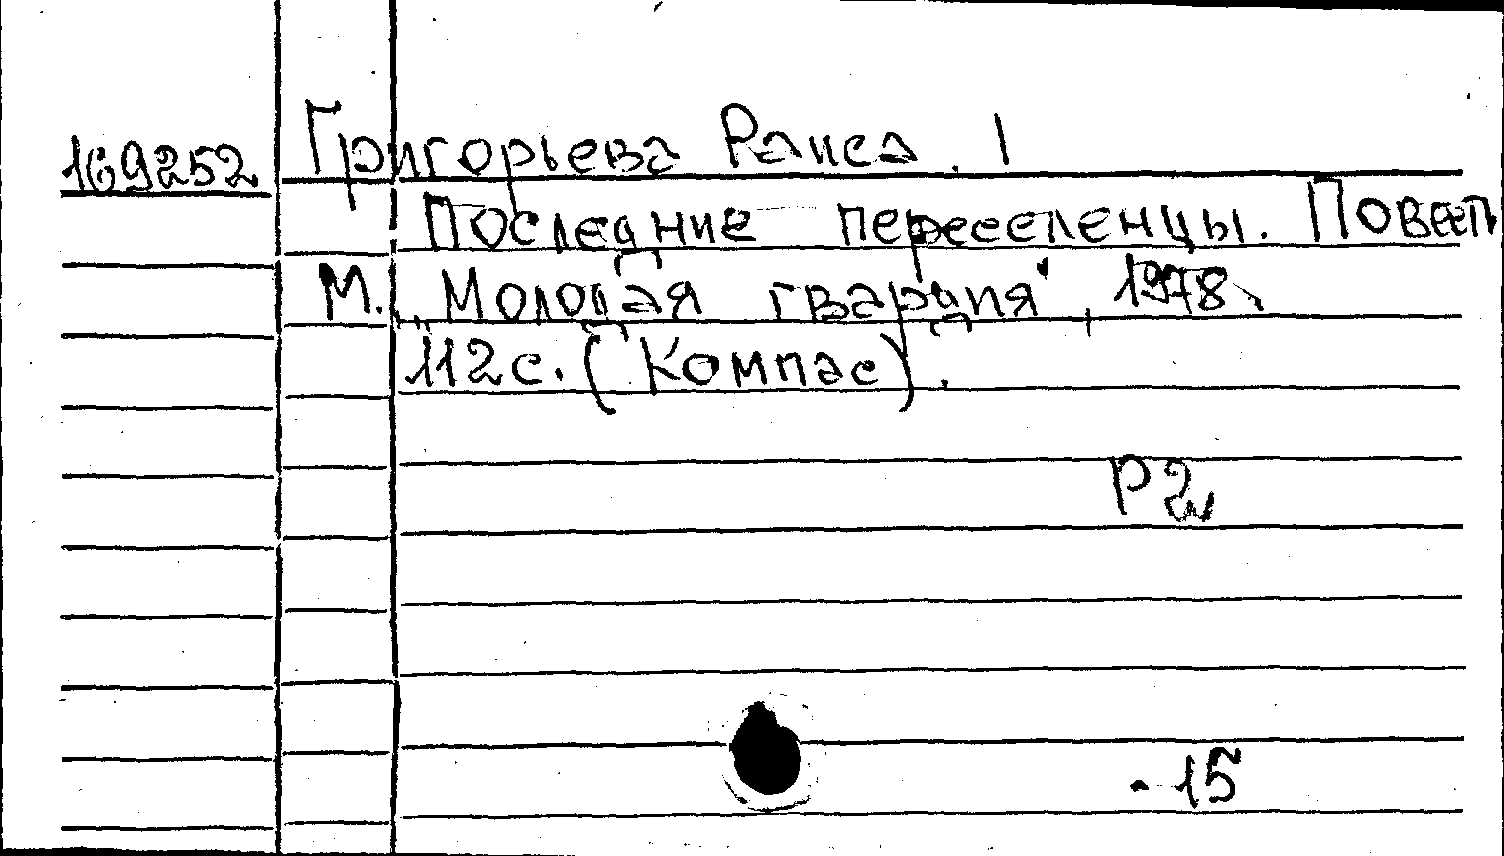 169252 Григорьева Раиса. 1
Последние переселенцы. Повесть
М. „Молодая гвардия", 1978.
112 с. (Компас).
Р2
15